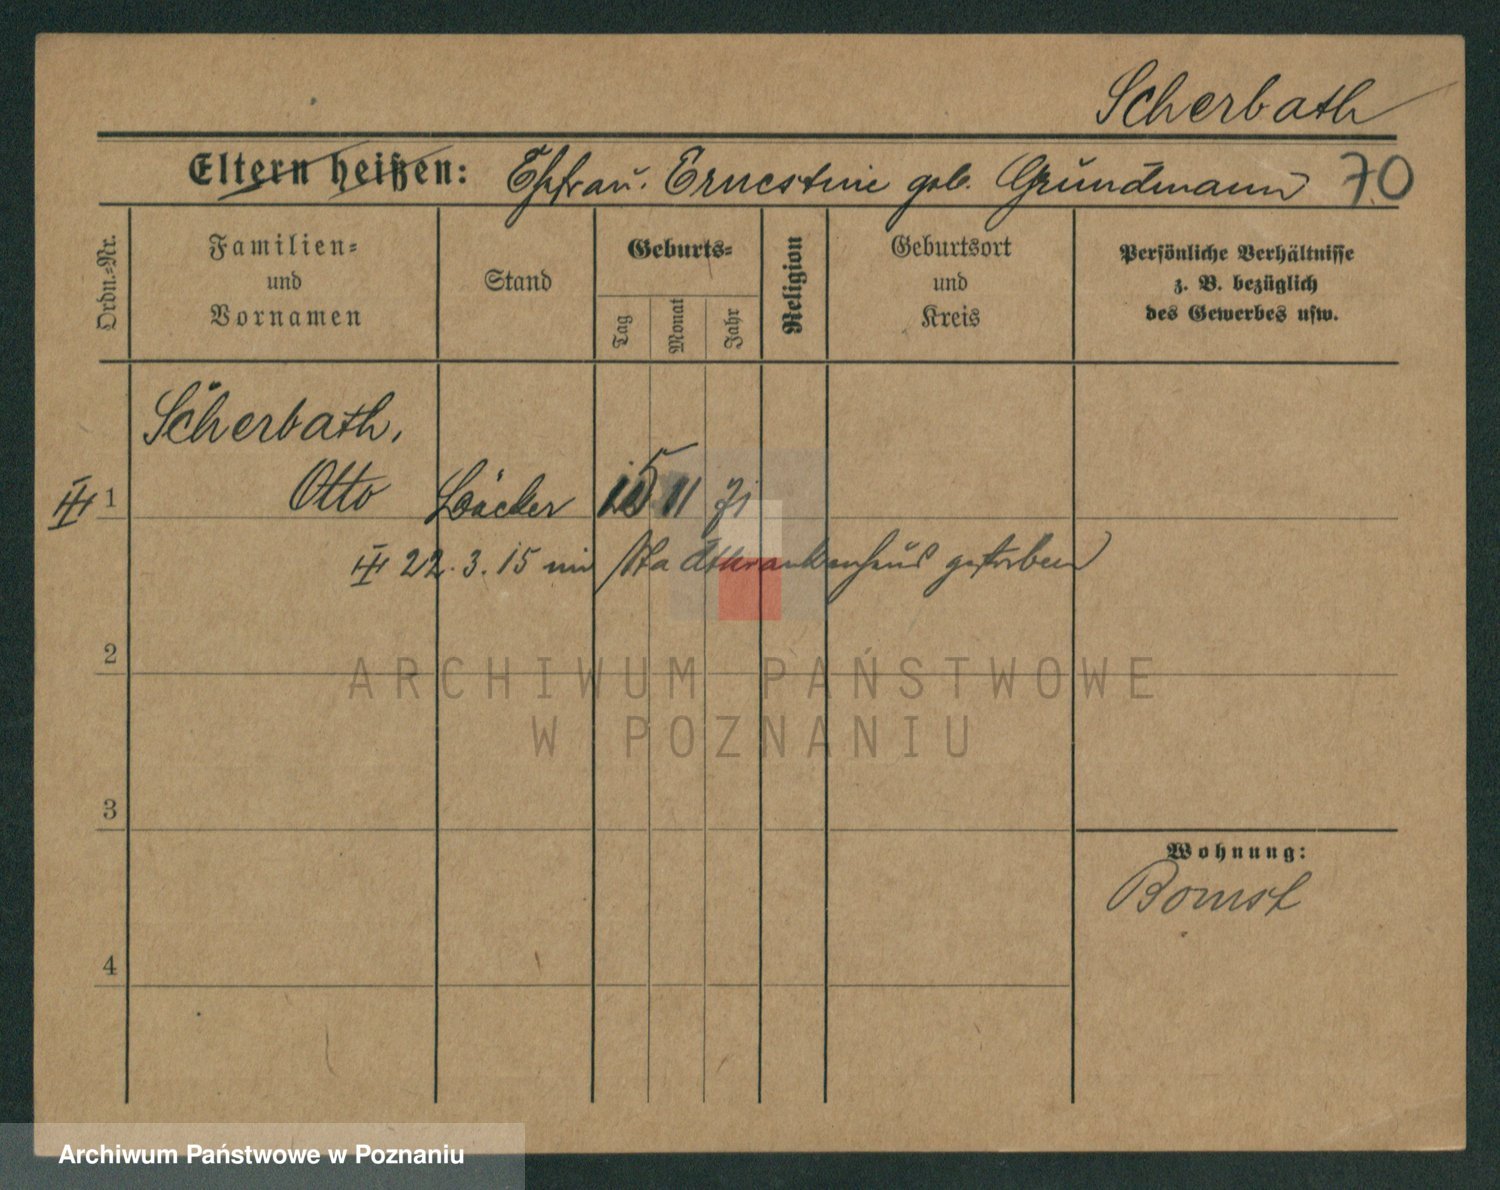 Scherbath
Eltern heißen: Ehfrau. Ernestine geb. Grundmann 70
Ordn.-Nr.
Familien-
und
Vornamen
Stand
Geburts-
Tag
Monat
Jahr
Religion
Geburtsort
und
Kreis
Persönliche Verhältnisse
z. B. bezüglich
des Gewerbes usw.
Scherbath,
1 Otto Bäcker 15 11 71
22.3.15 im Stadtkrankenhaus gestorben
2
ARCHIWUM PAŃSTWOWE
W POZNANIU
3
Wohnung:
Bomst
4
Archiwum Państwowe w Poznaniu